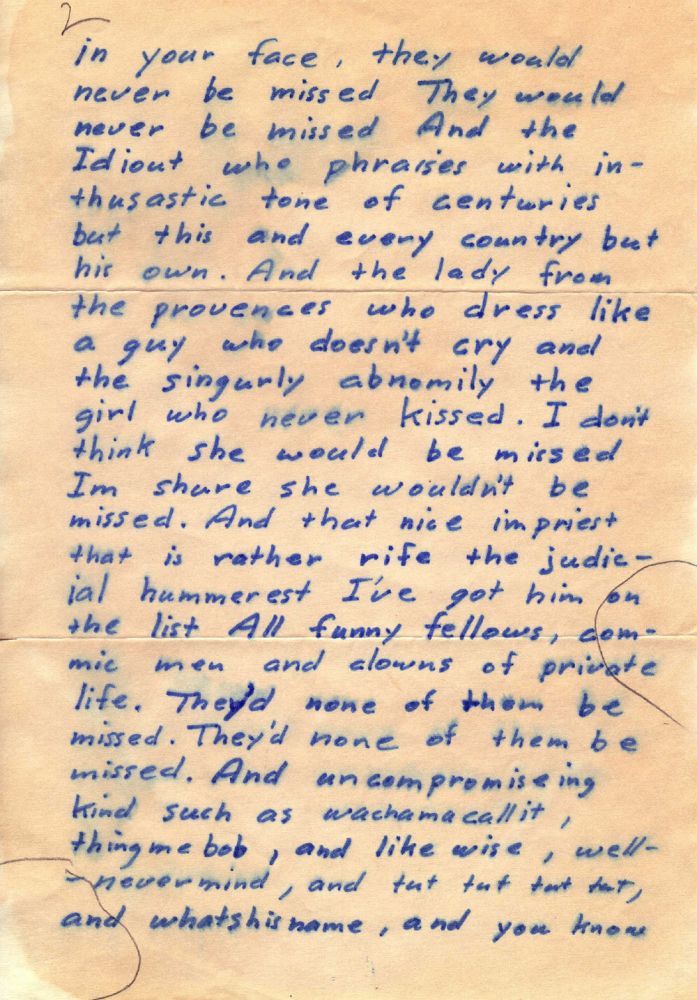 2
in your face, they would
never be missed They would
never be missed And the
Idiout who phraises with in-
thusastic tone of centuries
but this and every country but
his own. And the lady from
the provences who dress like
a guy who doesn't cry and
the singurly abnomily the
girl who never kissed. I don't
think she would be missed
Im share she wouldn't be
missed. And that nice impriest
that is rather rife the judic-
ial hummerest I've got him on
the list All funny fellows, com-
mic men and clowns of private
life. They'd none of them be
missed. They'd none of them be
missed. And uncompromiseing
kind such as wachamacallit,
thingmebob, and like wise, well-
-nevermind, and tut tut tut tut,
and whatshisname, and you know